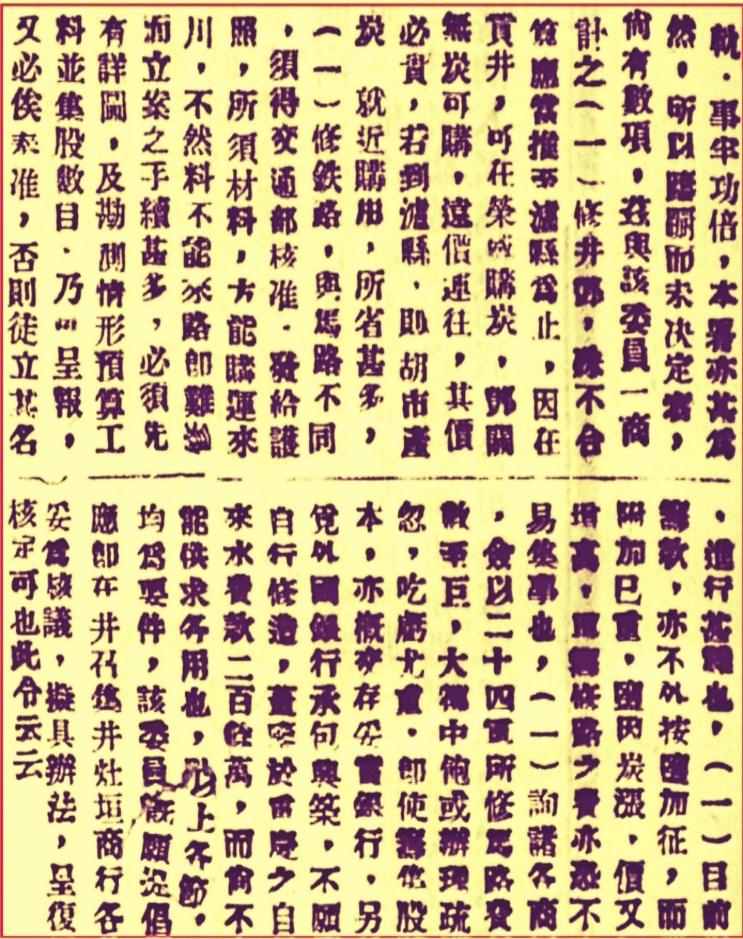 軌．事半功倍，本署亦甚為
然，所以躊躇而未决定者，
尚有數項，茲與該委員一商
計之（一）修井鄧，殊不合
算應當推至瀘縣為止，因在
貢井，可在榮威購炭，鄧關
無炭可購，遠借運往，其價
必貴，若到瀘縣．則胡市產
炭　就近購用，所省甚多，
（一）修鉄路，與馬路不同
，須得交通部核准．發給護
照，所須材料，方能購運來
川，不然料不能來路卽難辦
而立案之手續甚多，必須先
有詳圖，及勘測情形預算工
料並集股數目．乃可呈報，
又必俟核准，否則徒立其名
．進行甚難也，（一）目前
籌欵，亦不外按鹽加征，而
附加已重，鹽因炭漲，價又
增高，再籌修路之費亦恐不
易集事也，（一）詢諸各商
，僉以二十四軍所修馬路費
數至巨，大都中飽或辦理疏
忽，吃虧尤重．卽使籌集股
本，亦存妥實銀行，另
覓外國銀行承包興築，不願
自行修造，蓋鑒於重慶之自
來水費欵二百餘萬，而尚不
能供求各用也，以上各節，
均為要件，該委員旣願提倡
應卽在井召集井灶垣商行各
妥為核議，擬具辦法，呈復
核定可也此令云云